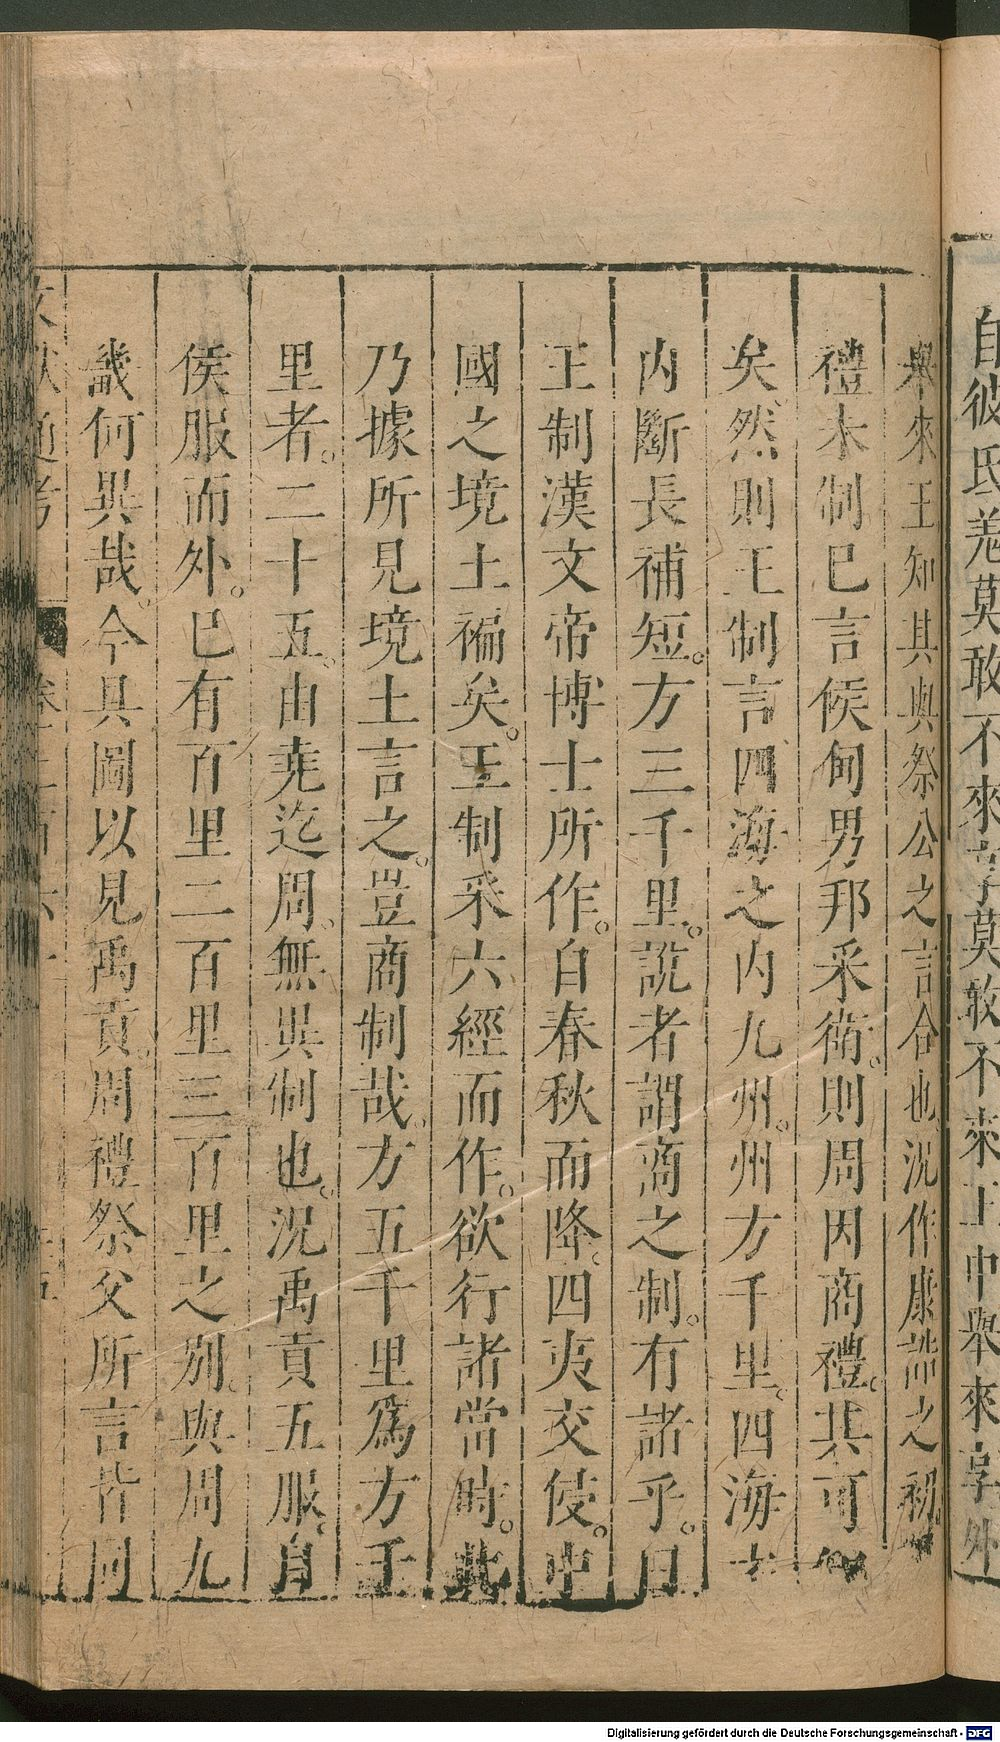 自彼氐羌莫敢不來享莫敢不來王中舉來享外
舉來王知其與祭公之言合也況作康誥之初
禮未制巳言侯甸男邦采衛。則周因商禮。其可知
矣。然則王制言四海之內九州。州方千里。四海之
内斷長補短。方三千里。說者謂商之制。有諸乎。曰
王制漢文帝博士所作。自春秋而降。四夷交侵。中
國之境土褊矣。王制采六經而作。欲行諸當時。此
乃據所見境土言之。豈商制哉。方五千里爲方千
里者。二十五。由堯迄周。無異制也。況禹貢五服。自
侯服而外。巳有百里二百里三百里之別。與周九
畿何異哉。今具圖以見禹貢。周禮祭父所言皆同
文獻通考 卷二百六十
Digitalisierung gefördert durch die Deutsche Forschungsgemeinschaft - DFG